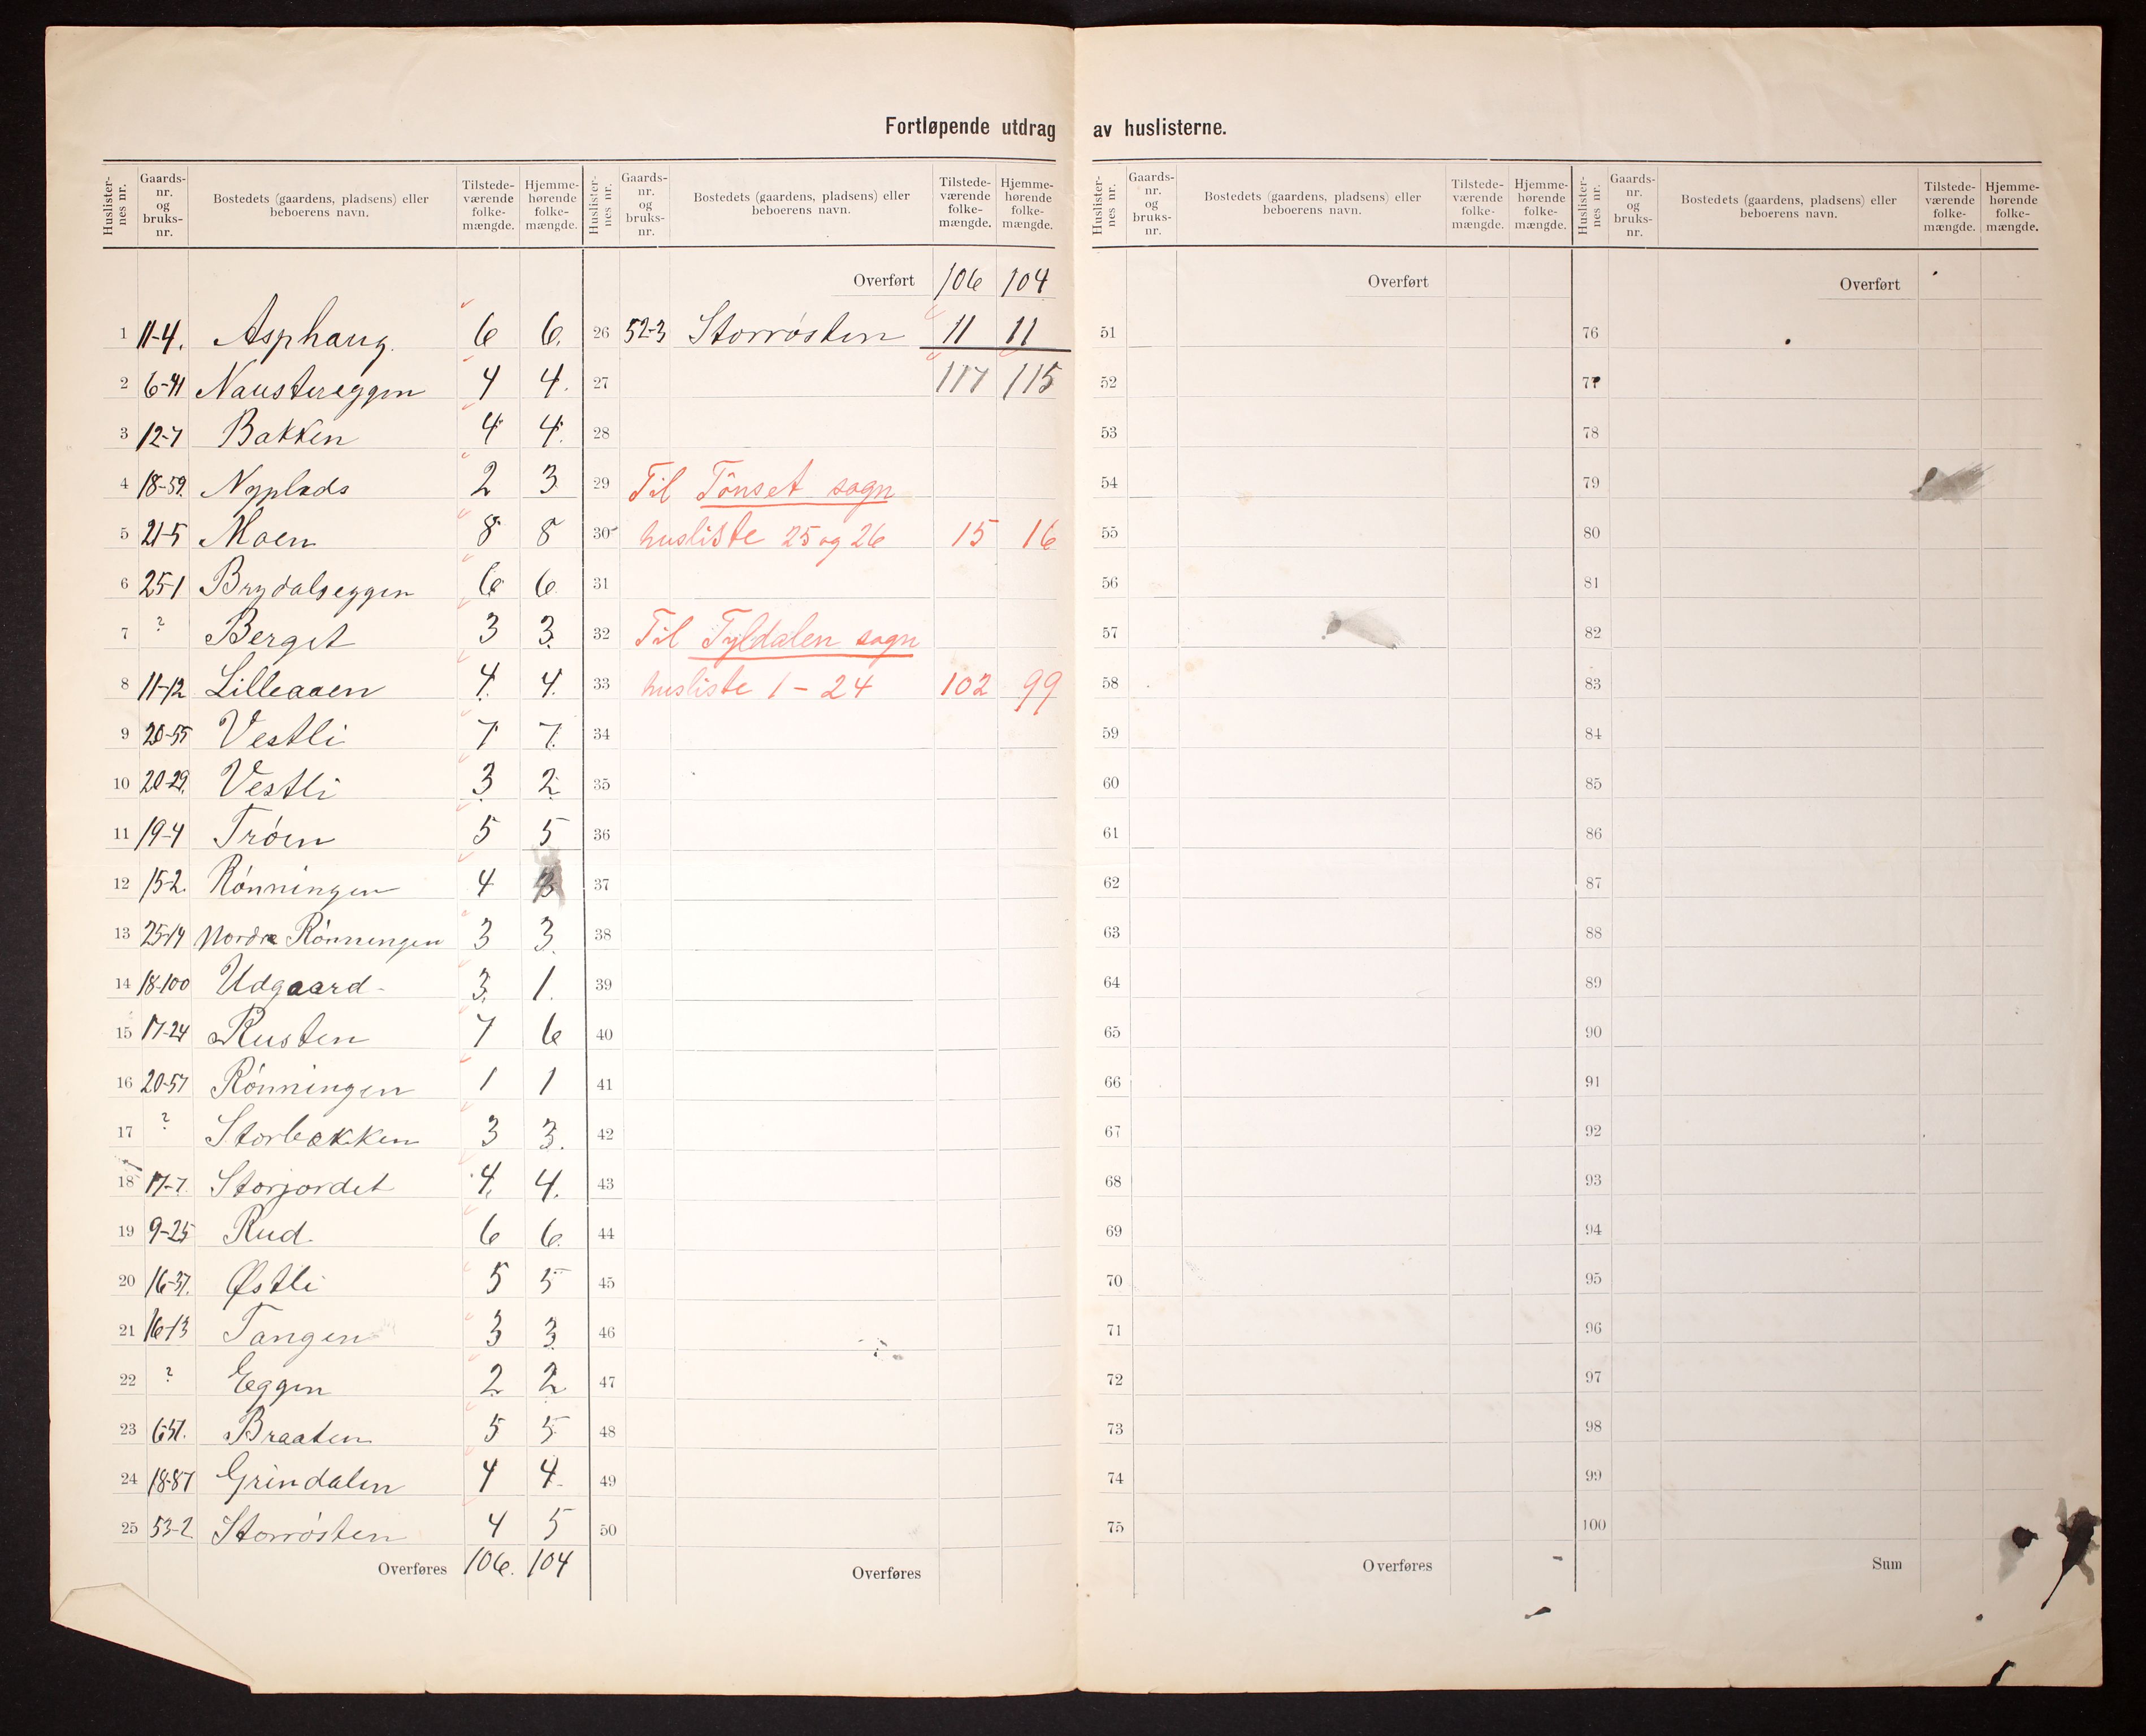 Fortløpende utdrag av huslisterne.
Huslister-nes nr. Gaards-nr. og bruks-nr. Bostedets (gaardens, pladsens) eller beboerens navn. Tilstede-værende folke-mængde. Hjemme-hørende folke-mængde.
1 11-4. Asphaug. 6 6.
2 6-41 Naustereggen 4 4.
3 12-7 Bakken 4 4.
4 18-59. Nyplads 2 3
5 21-5 Moen 8 8
6 25-1 Brydalseggen 6 6
7 ? Berget 3 3.
8 11-12 Lilleaaen 4. 4.
9 20-55 Vestli 7 7.
10 20-29. Vestli 3 2
11 19-4 Trøen 5 5
12 15-2. Rønningen 4 3
13 25-14 Nordre Rønningen 3 3.
14 18-100 Udgaard 3. 1.
15 17-24 Rusten 7 6
16 20-57 Rønningen 1 1
17 ? Storbakken 3 3.
18 17-7. Storjordet 4. 4.
19 9-25 Rud 6 6.
20 16-37. Østli 5 5
21 16-13 Tangen 3 3
22 ? Eggen 2 2
23 6-51. Braaten 5 5
24 18-87 Grindalen 4 4
25 53-2 Storrøsten 4 5
Overføres 106. 104
Huslister-nes nr. Gaards-nr. og bruks-nr. Bostedets (gaardens, pladsens) eller beboerens navn. Tilstede-værende folke-mængde. Hjemme-hørende folke-mængde.
Overført 106 104
26 52-3 Storrøsten 11 11
27 117 115
28
29 Til Tönset sogn
30 husliste 25 og 26 15 16
31
32 Til Tyldalen sogn
33 husliste 1 - 24 102 99
34
35
36
37
38
39
40
41
42
43
44
45
46
47
48
49
50
Overføres
Huslister-nes nr. Gaards-nr. og bruks-nr. Bostedets (gaardens, pladsens) eller beboerens navn. Tilstede-værende folke-mængde. Hjemme-hørende folke-mængde.
Overført
51
52
53
54
55
56
57
58
59
60
61
62
63
64
65
66
67
68
69
70
71
72
73
74
75
Overføres
Huslister-nes nr. Gaards-nr. og bruks-nr. Bostedets (gaardens, pladsens) eller beboerens navn. Tilstede-værende folke-mængde. Hjemme-hørende folke-mængde.
Overført
76
77
78
79
80
81
82
83
84
85
86
87
88
89
90
91
92
93
94
95
96
97
98
99
100
Sum